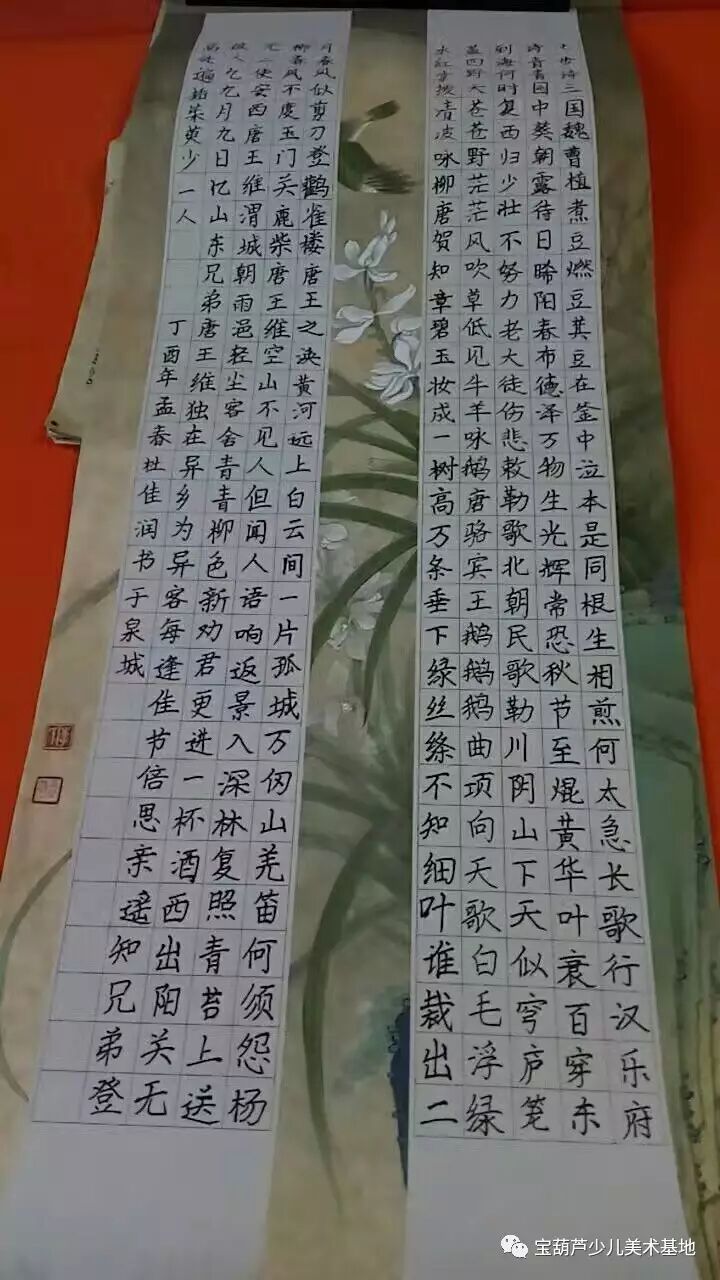 七步诗三国魏曹植煮豆燃豆萁豆在釜中泣本是同根生相煎何太急长歌行汉乐府
诗青青园中葵朝露待日晞阳春布德泽万物生光辉常恐秋节至焜黄华叶衰百穿东
到海何时复西归少壮不努力老大徒伤悲敕勒歌北朝民歌勒川阴山下天似穹庐笼
盖四野天苍苍野茫茫风吹草低见牛羊咏鹅唐骆宾王鹅鹅鹅曲项向天歌白毛浮绿
水红掌拨清波咏柳唐贺知章碧玉妆成一树高万条垂下绿丝绦不知细叶谁裁出二
月春风似剪刀登鹳雀楼唐王之涣黄河远上白云间一片孤城万仞山羌笛何须怨杨
柳春风不度玉门关鹿柴唐王维空山不见人但闻人语响返景入深林复照青苔上送
元二使安西唐王维渭城朝雨浥轻尘客舍青青柳色新劝君更进一杯酒西出阳关无
故人月九日忆山东兄弟唐王维独在异乡为异客每逢佳节倍思亲遥知兄弟登
高处遍插茱萸少一人 丁酉年孟春杜佳润书于泉城
宝葫芦少儿美术基地